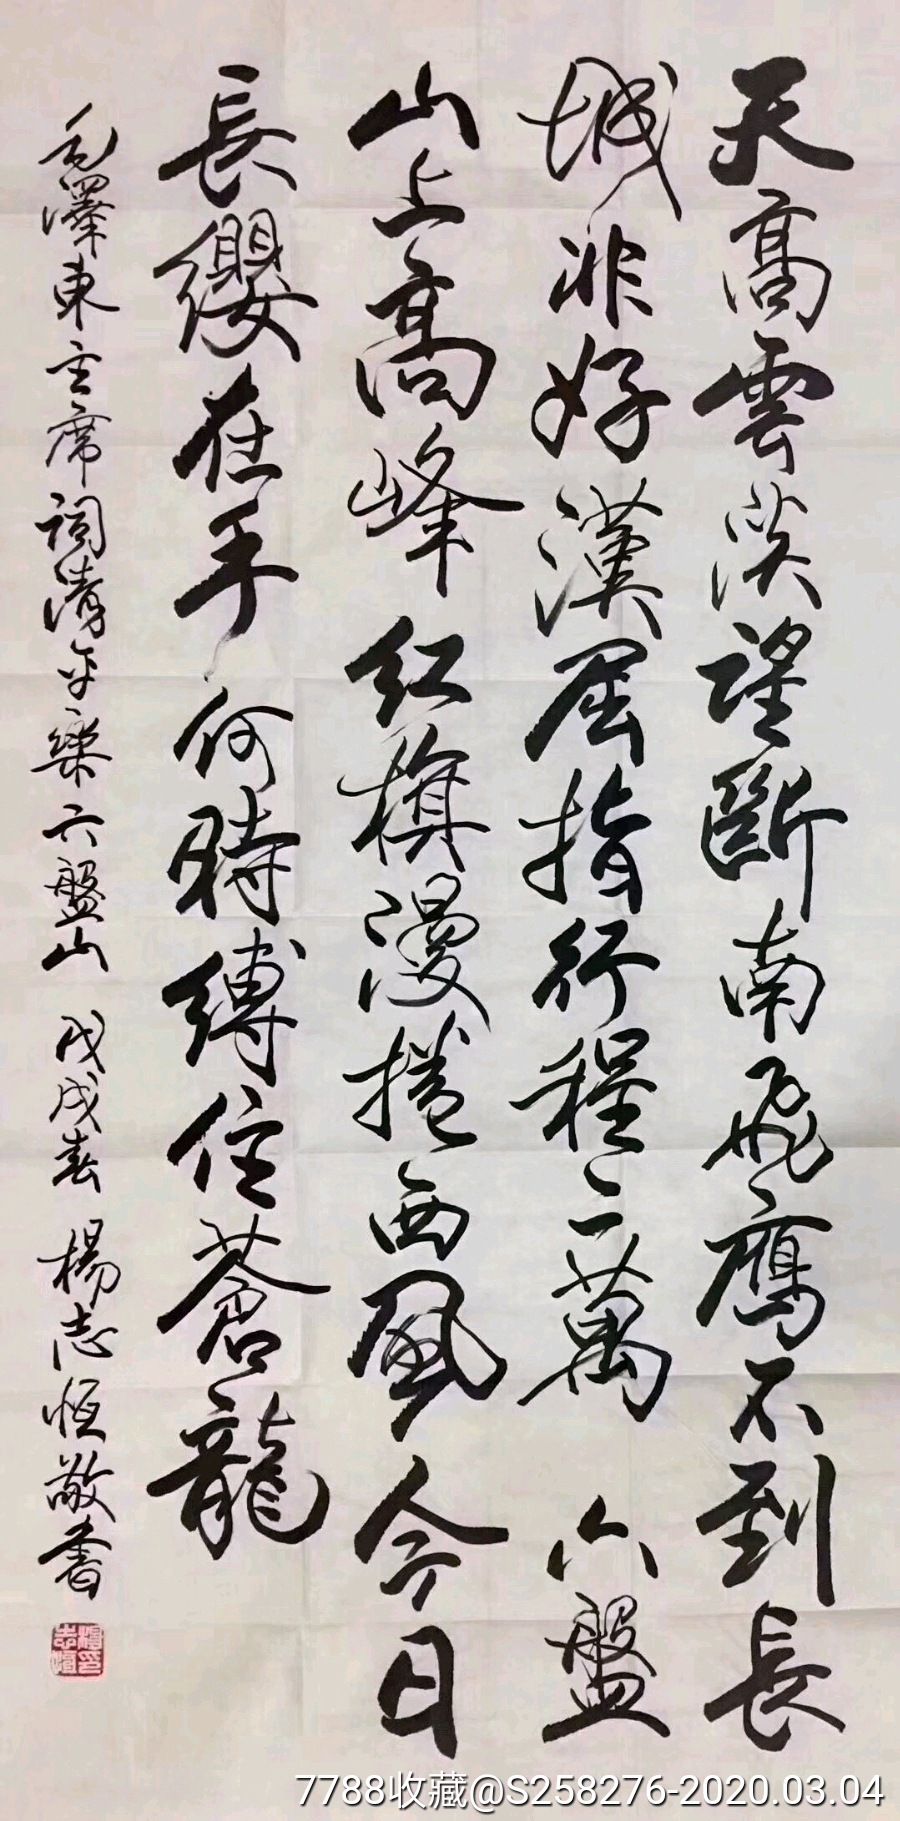 天高雲淡望斷南飛鴈不到長
城非好漢屈指行程二萬 六盤
山上高峰紅旗漫捲西風今日
長纓在手何時縛住蒼龍
毛澤東主席詞清平樂六盤山 戊戌春 楊志恆敬書
7788收藏@S258276-2020.03.04